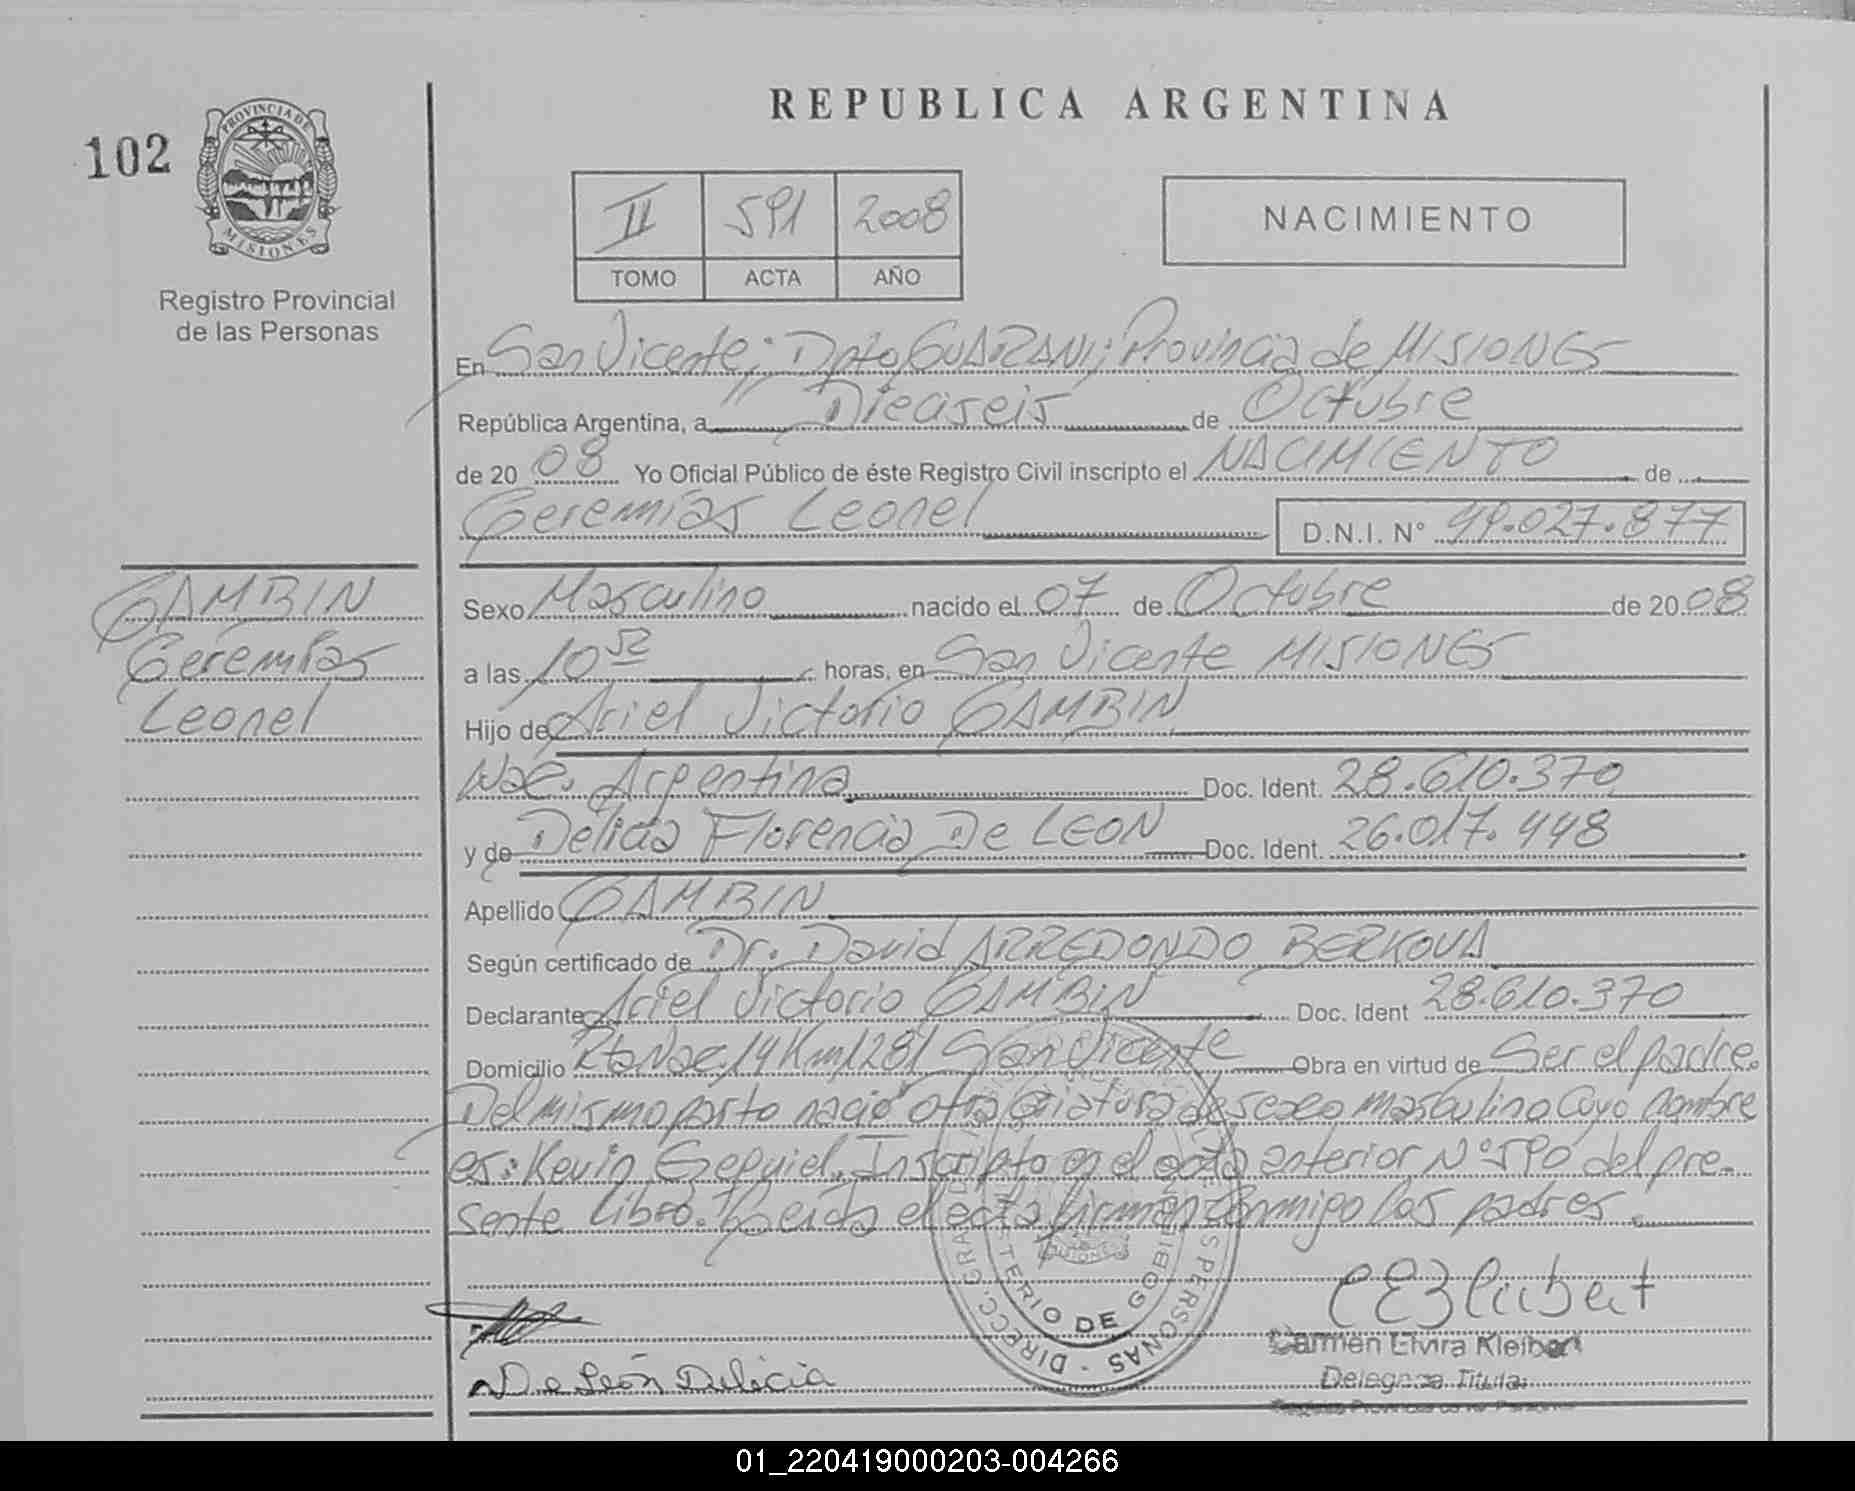 102
PROVINCIA DE
MISIONES
Registro Provincial
de las Personas
REPUBLICA ARGENTINA
II 591 2008
TOMO ACTA AÑO
NACIMIENTO
En San Vicente; Dpto GUARANI; Provincia de MISIONES
República Argentina, a Dieciseis de Octubre
de 2008 Yo Oficial Público de éste Registro Civil inscripto el NACIMIENTO de
Geremías Leonel D.N.I. N° 49.027.877
GAMBIN
Geremías
Leonel
Sexo Masculino nacido el 07 de Octubre de 2008
a las 10 52 horas, en San Vicente MISIONES
Hijo de Ariel Victorio GAMBIN
Nac. Argentina Doc. Ident. 28.610.370
y de Delicia Florencia De LEON Doc. Ident. 26.017.448
Apellido GAMBIN
Según certificado de Dr. David ARREDONDO BERKOVA
Declarante Ariel Victorio GAMBIN Doc. Ident 28.610.370
Domicilio Rta Nac. 14 Km 1281 San Vicente Obra en virtud de Ser el padre.
Del mismo parto nació otra criatura de sexo masculino cuyo nombre
es: Kevin Ezequiel. Inscripto en el acta anterior N° 590 del pre-
sente libro. Leída el acta firman conmigo los padres.
De León Delicia
Carmen Elvira Kleibert
Delegada Titular
DIRECC. GRAL. PERSONAS
MINISTERIO DE GOBIERNO
01_220419000203-004266